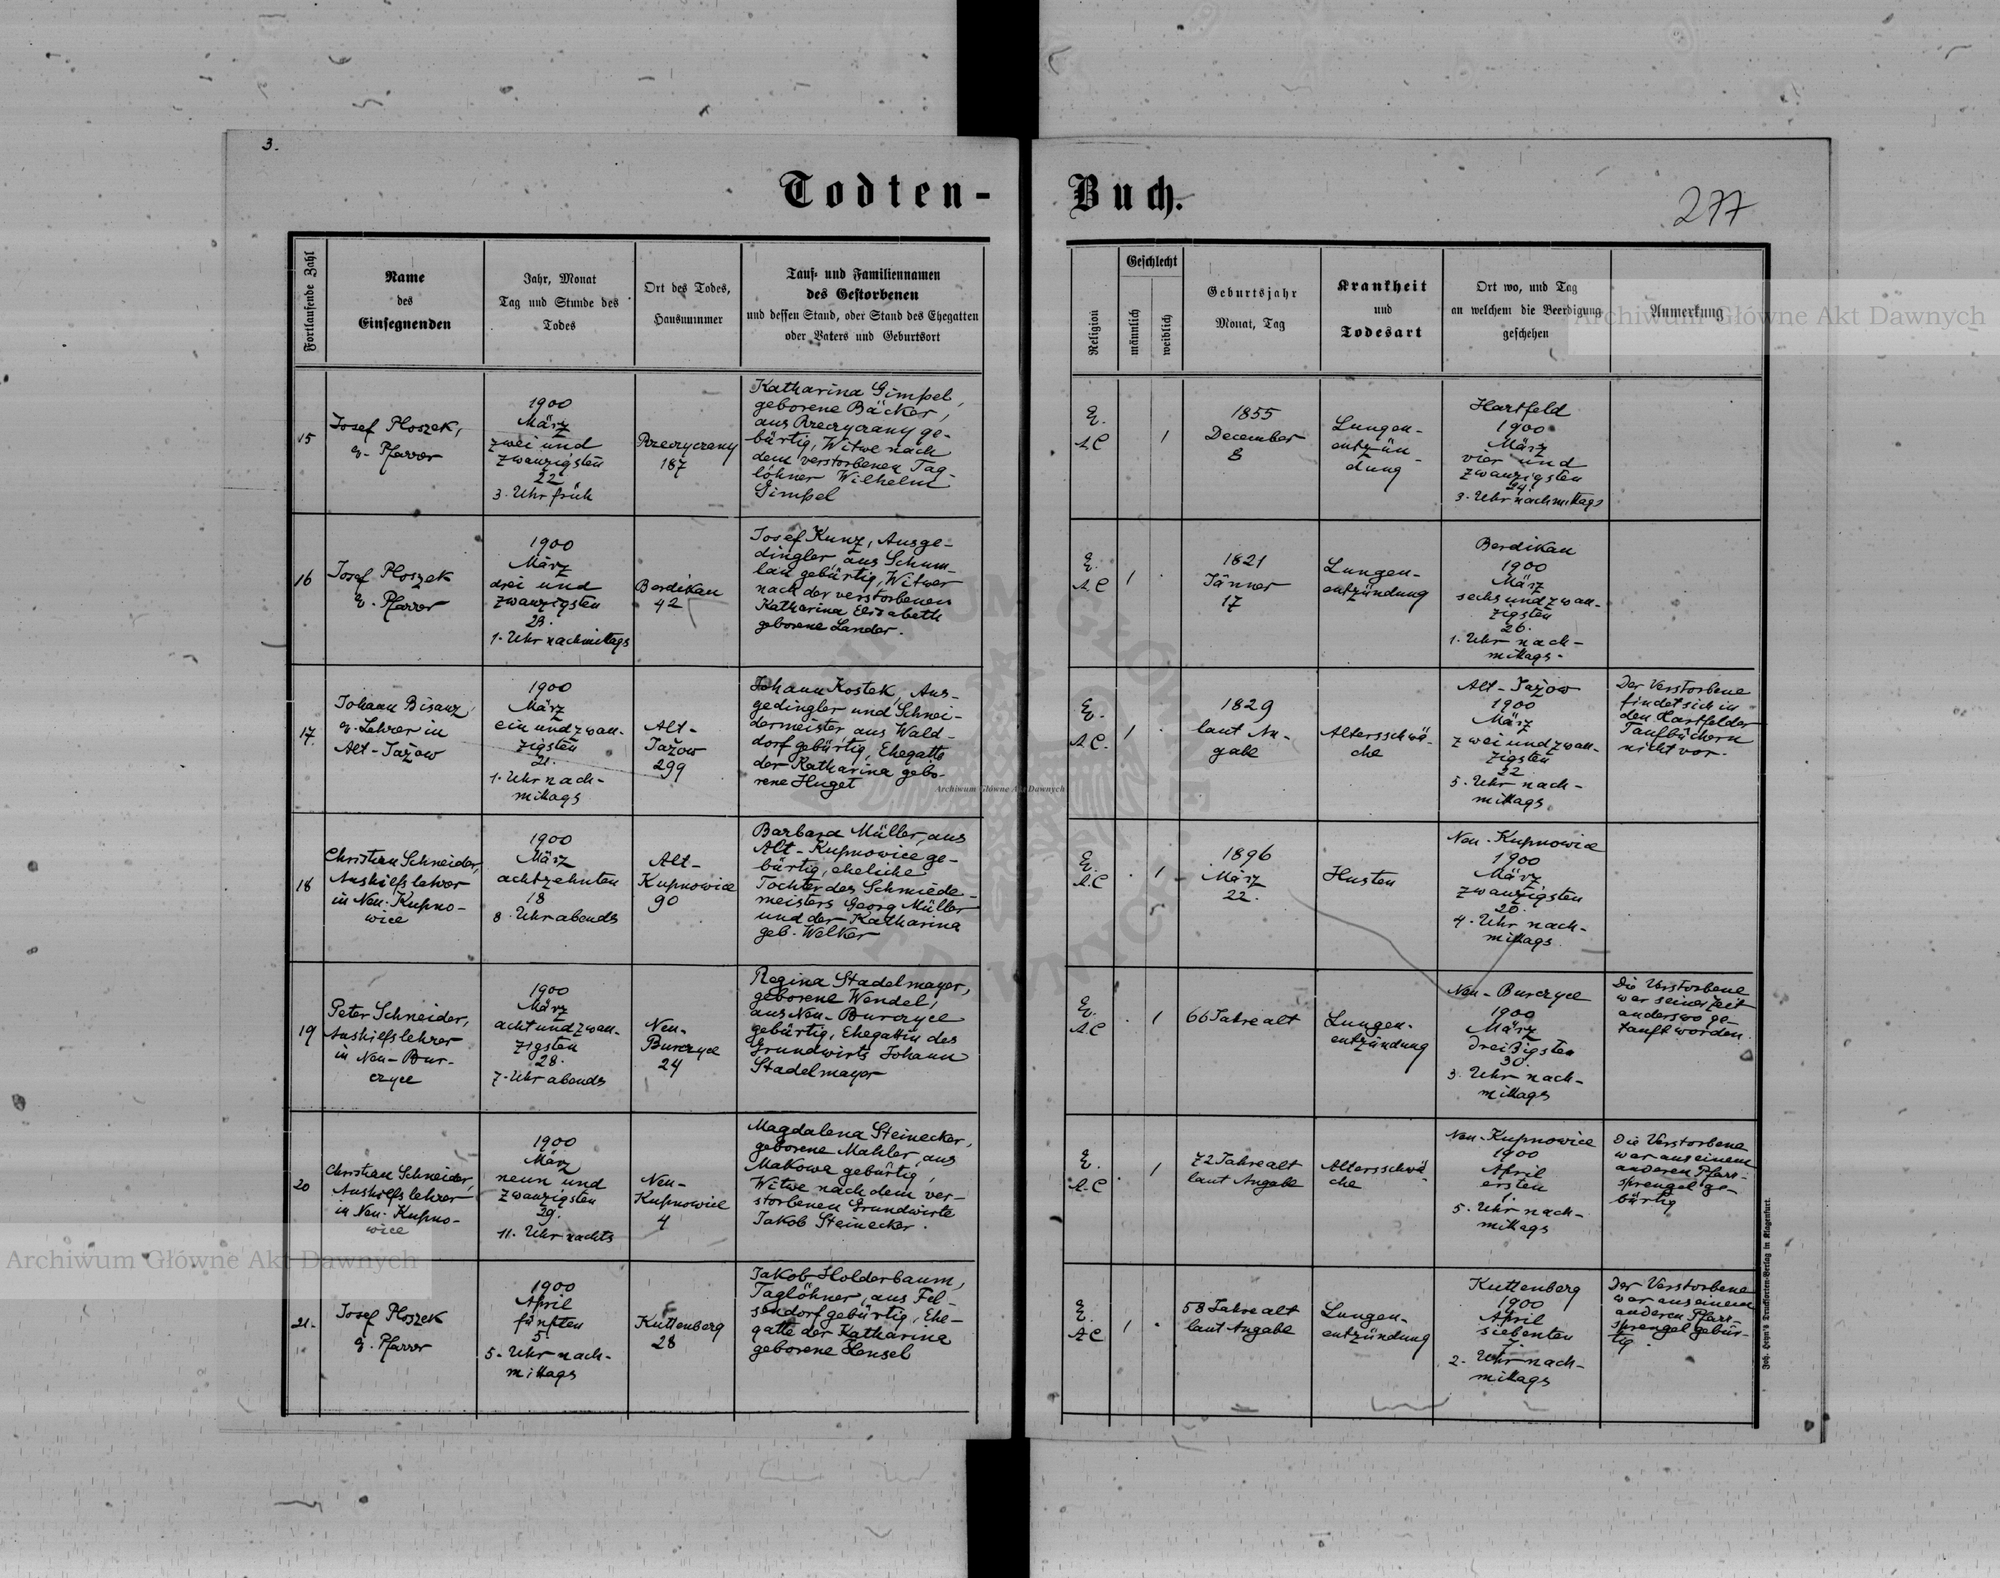 3.
Todten-Buch.
277
Fortlaufende Zahl
Name
des
Einsegnenden
Jahr, Monat
Tag und Stunde des
Todes
Ort des Todes,
Hausnummer
Tauf- und Familiennamen
des Gestorbenen
und dessen Stand, oder Stand des Ehegatten
oder Vaters und Geburtsort
Religion
Geschlecht
männlich
weiblich
Geburtsjahr
Monat, Tag
Krankheit
und
Todesart
Ort wo, und Tag
an welchem die Beerdigung
geschehen
Anmerkung
15
Josef Ploszek,
ev. Pfarrer
1900
März
zwei und
zwanzigsten
22
3. Uhr früh
Rzeczyczany
187
Katharina Gimpel,
geborene Bäcker,
aus Rzeczyczany ge-
bürtig, Witwe nach
dem verstorbenen Tag-
löhner Wilhelm
Gimpel
E.
AC
1
1855
December
8
Lungen-
entzün-
dung
Hartfeld
1900
März
vier und
zwanzigsten
24.
3. Uhr nachmittags
16
Josef Ploszek
ev. Pfarrer
1900
März
drei und
zwanzigsten
23.
1. Uhr nachmittags
Berdikau
42
Josef Kunz, Ausge-
dingler, aus Schum-
lau gebürtig, Witwer
nach der verstorbenen
Katharina Elisabeth
geborene Lander.
E.
AC
1 .
1821
Jänner
17
Lungen-
entzündung
Berdikau
1900
März
sechs und zwan-
zigsten
26.
1. Uhr nach-
mittags.
17.
Johann Bisanz,
ev. Lehrer in
Alt-Jażow
1900
März
ein und zwan-
zigsten
21.
1. Uhr nach-
mittags
Alt-
Jażow
299
Johann Kostek, Aus-
gedingler und Schnei-
dermeister aus Wald-
dorf gebürtig, Ehegatte
der Katharina gebo-
rene Huget
E.
AC.
1 .
1829
laut An-
gabe
Altersschwä-
che
Alt-Jażow
1900
März
zwei und zwan-
zigsten
22
5. Uhr nach-
mittags
Der Verstorbene
findet sich in
den Hartfelder
Taufbüchern
nicht vor.
18
Christian Schneider,
Aushilfslehrer
in Neu-Kupno-
wice
1900
März
achtzehnten
18
8. Uhr abends
Alt-
Kupnowice
90
Barbara Müller, aus
Alt-Kupnowice ge-
bürtig, eheliche
Tochter des Schmiede-
meisters Georg Müller
und der Katharina
geb. Welker
E.
A.C
. 1
1896
März
22.
Husten
Neu-Kupnowice
1900
März
zwanzigsten
20.
4. Uhr nach-
mittags.
19
Peter Schneider,
Aushilfslehrer
in Neu-Bur-
czyce
1900
März
acht und zwan-
zigsten
28.
7. Uhr abends
Neu-
Burczyce
24
Regina Stadelmayer,
geborene Wendel,
aus Neu-Burczyce
gebürtig, Ehegattin des
Grundwirts Johann
Stadelmayer
E.
AC
. 1
66 Jahre alt
Lungen-
entzündung
Neu-Burczyce
1900
März
dreißigsten
30.
3. Uhr nach-
mittags
Die Verstorbene
war seiner Zeit
anderswo ge-
tauft worden.
20
Christian Schneider,
Aushilfslehrer
in Neu-Kupno-
wice
1900
März
neun und
zwanzigsten
29.
11. Uhr nachts
Neu-
Kupnowice
4
Magdalena Steinecker,
geborene Mahler, aus
Makowa gebürtig,
Witwe nach dem ver-
storbenen Grundwirte
Jakob Steinecker.
E.
A.C
. 1
72 Jahre alt
laut Angabe
Altersschwä-
che
Neu-Kupnowice
1900
April
ersten
1.
5. Uhr nach-
mittags
Die Verstorbene
war aus einem
anderen Pfarr-
sprengel ge-
bürtig
21.
Josef Ploszek
ev. Pfarrer
1900
April
fünften
5
5. Uhr nach-
mittags
Kuttenberg
28
Jakob Holderbaum,
Taglöhner, aus Fel-
sendorf gebürtig, Ehe-
gatte der Katharina
geborene Hensel
E.
AC
1 .
58 Jahre alt
laut Angabe
Lungen-
entzündung
Kuttenberg
1900
April
siebenten
7.
2. Uhr nach-
mittags
Der Verstorbene
war aus einem
anderen Pfarr-
sprengel gebür-
tig.
Joh. Heyn's Drucksorten-Verlag in Klagenfurt.
Archiwum Główne Akt Dawnych
Archiwum Główne Akt Dawnych
Archiwum Główne Akt Dawnych